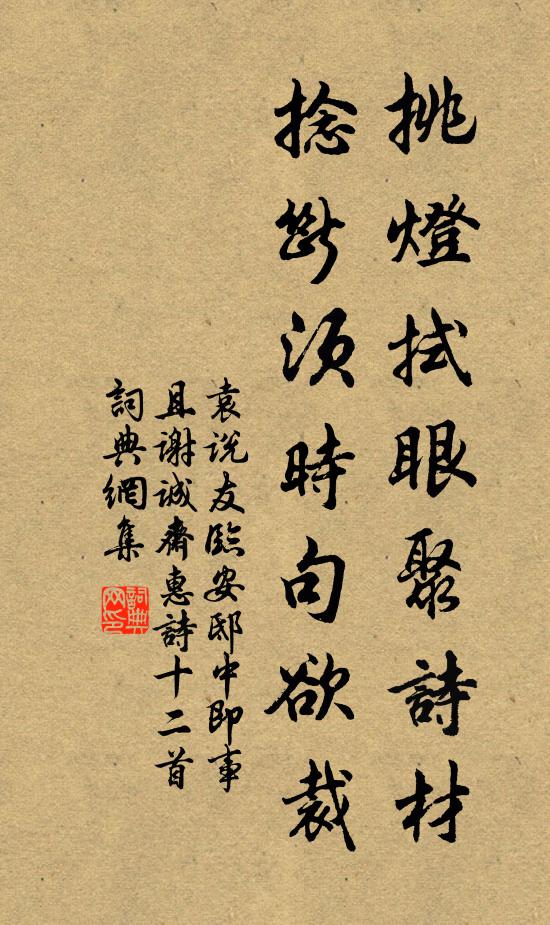 挑燈拭眼聚詩材
捻斷須時句欲裁
袁说友臨安邸中即事
且謝誠齋惠詩十二首
詞典網集
詞典網印